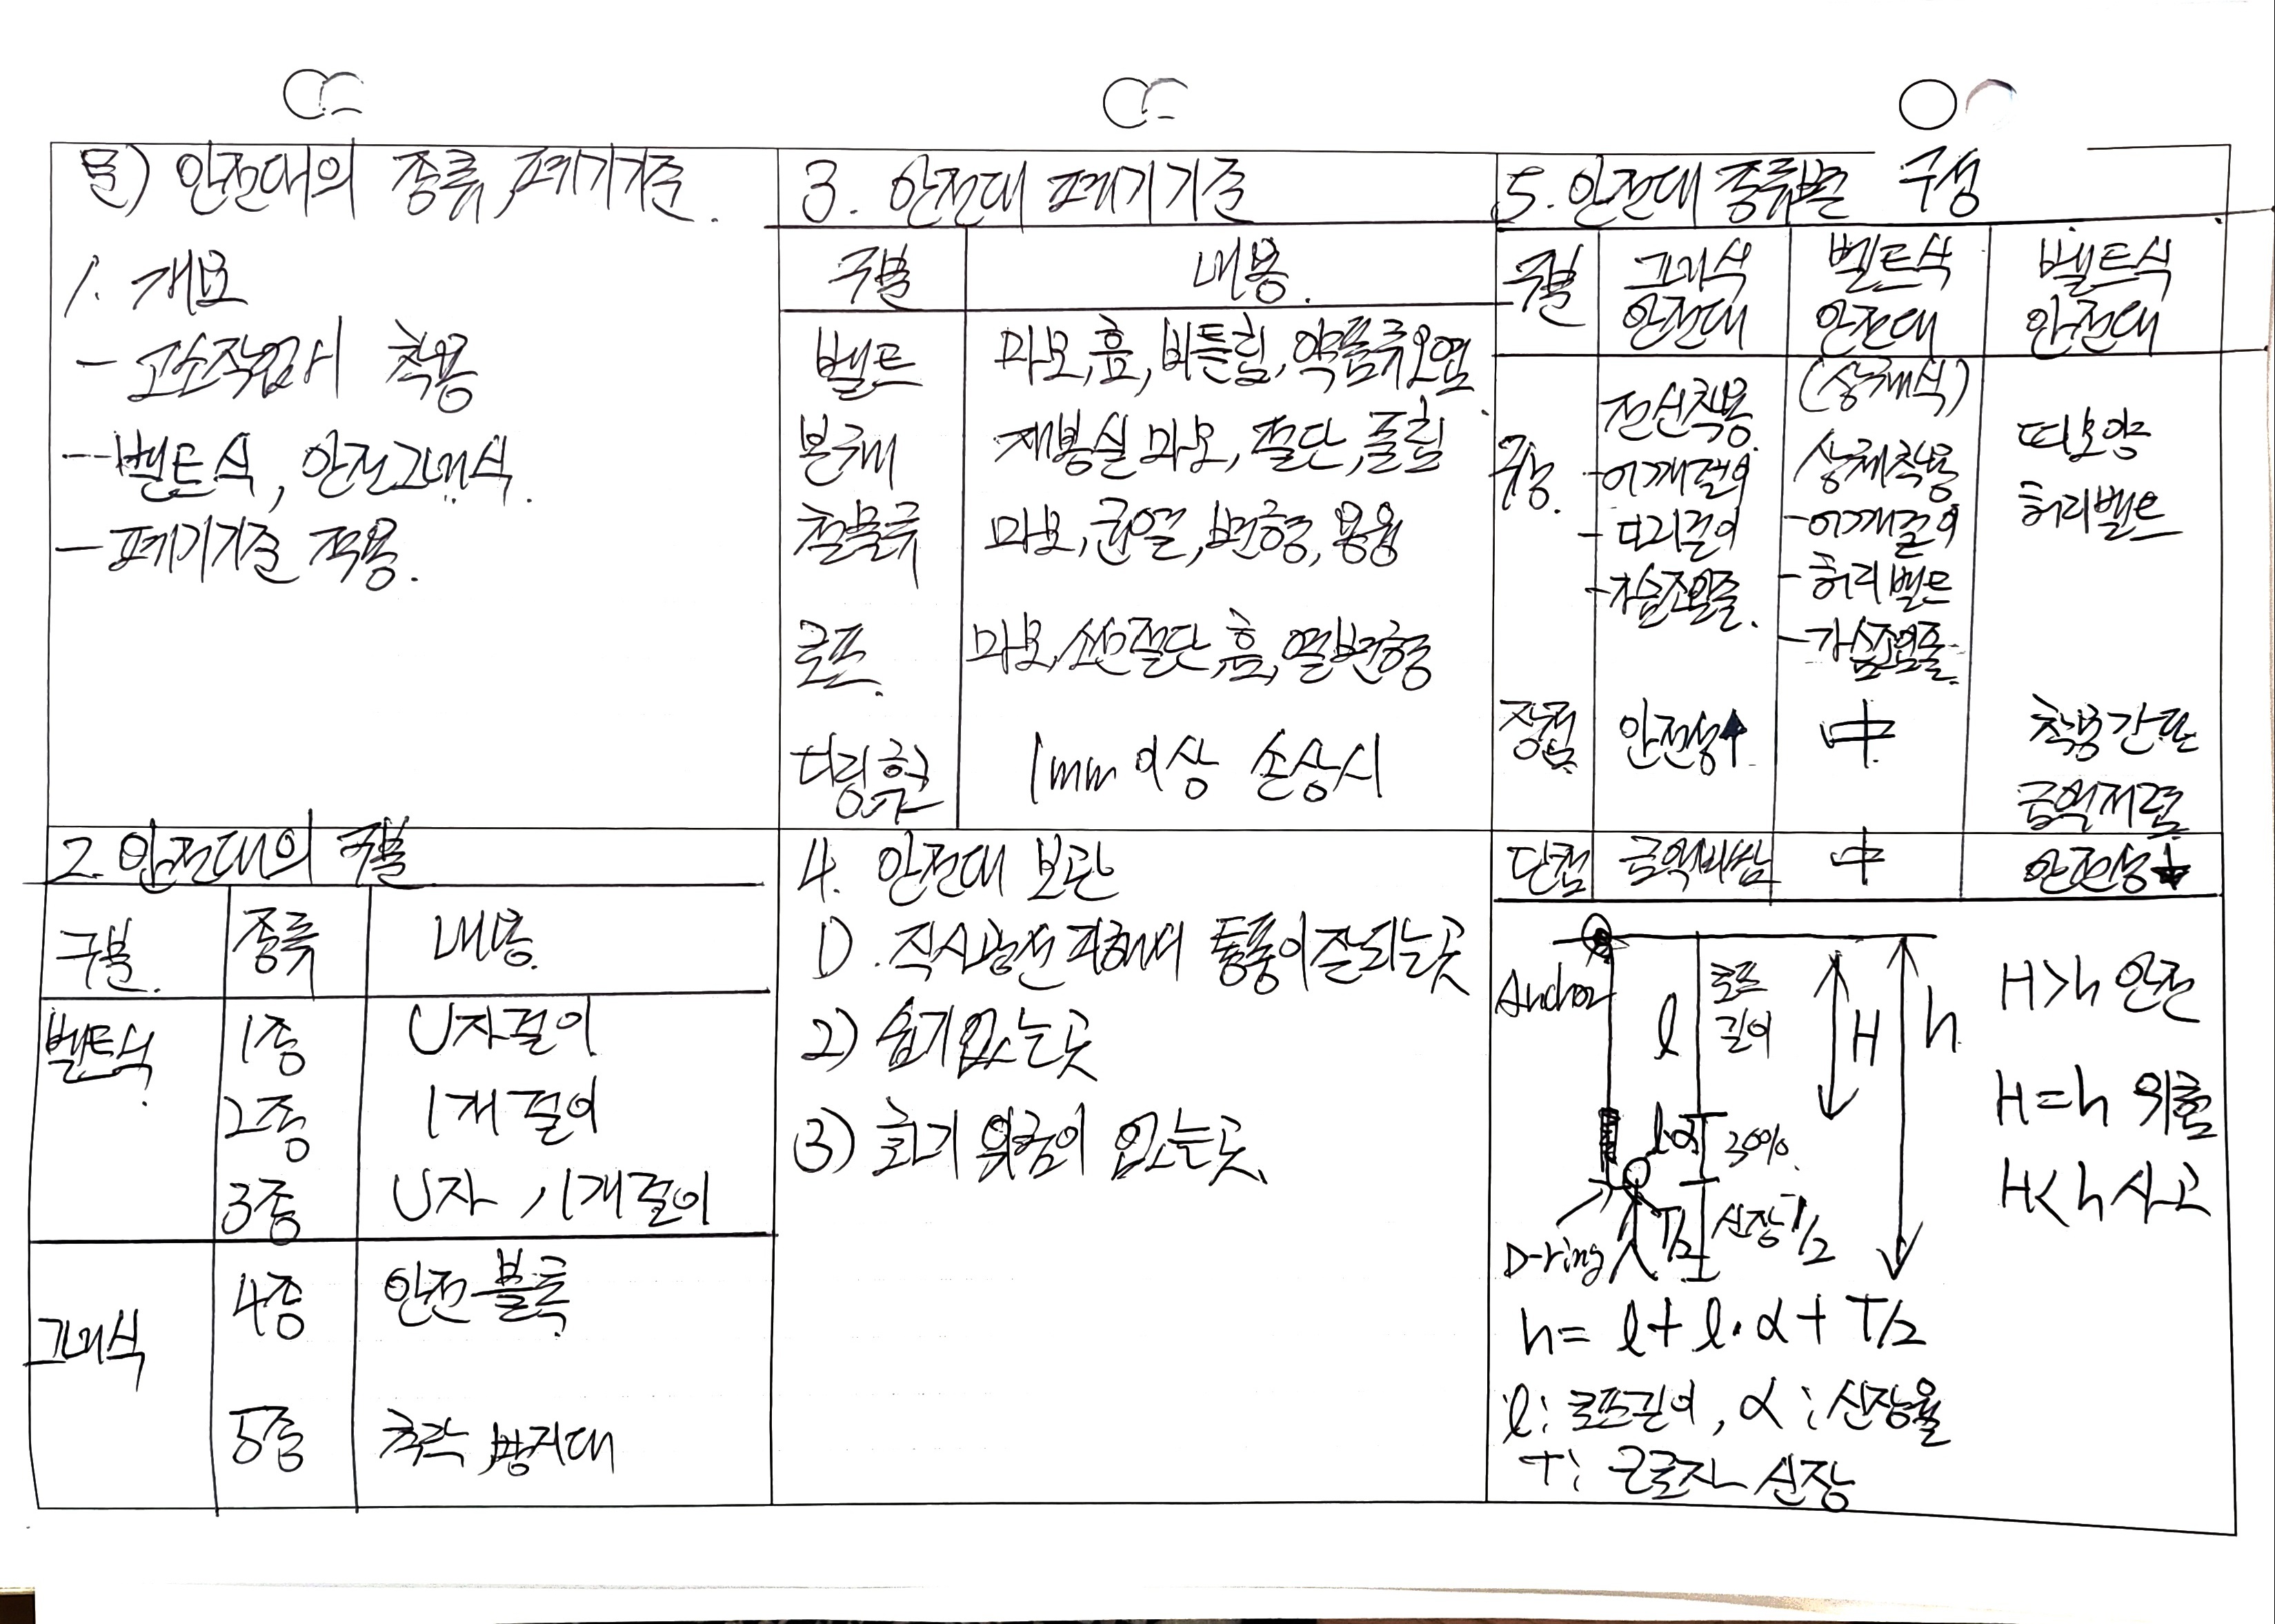 문) 안전대의 종류, 폐기기준.
1. 개요
- 고소작업시 착용
- 벨트식, 안전그네식.
- 폐기기준 적용.
2. 안전대의 구분
구분. 종류 내용.
벨트식. 1종 U자걸이
2종 1개 걸이
3종 U자, 1개걸이
그네식 4종 안전블록
5종 추락 방지대
3. 안전대 폐기기준
구분 내용.
벨트 마모, 흠, 비틀림, 약품류오염.
본체 재봉실 마모, 절단, 풀림
철물류 마모, 균열, 변형, 용융
로프. 마모, 소선절단, 흠, 열변형
D링 훅 1mm 이상 손상시
4. 안전대 보관
1). 직사광선 피해서 통풍이 잘되는곳
2) 습기없는곳
3) 화기 위험이 없는곳.
5. 안전대 종류별 구성
구분 그네식 안전대 벨트식 안전대 벨트식 안전대
구성. 전신착용 (상체식) 띠모양
- 어깨걸이 상체착용 허리벨트
- 다리걸이 - 어깨걸이
- 가슴조임줄. - 허리벨트
- 가슴조임줄.
장점 안전성↑ 中 착용간단
금액저렴
단점 금액비쌈 中 안전성↓
Anchor l 로프 길이 H h
H>h 안전
H=h 위험
H<h 사고
l·α 30%.
D-ring T/2 신장 T/2
h= l+l·α+T/2
l: 로프길이, α: 신장율
T: 근로자 신장